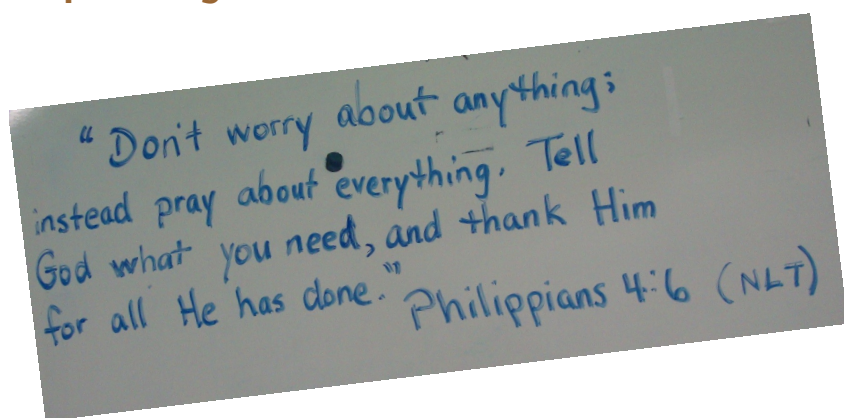 "Don't worry about anything;
instead pray about everything. Tell
God what you need, and thank Him
for all He has done."
Philippians 4:6 (NLT)